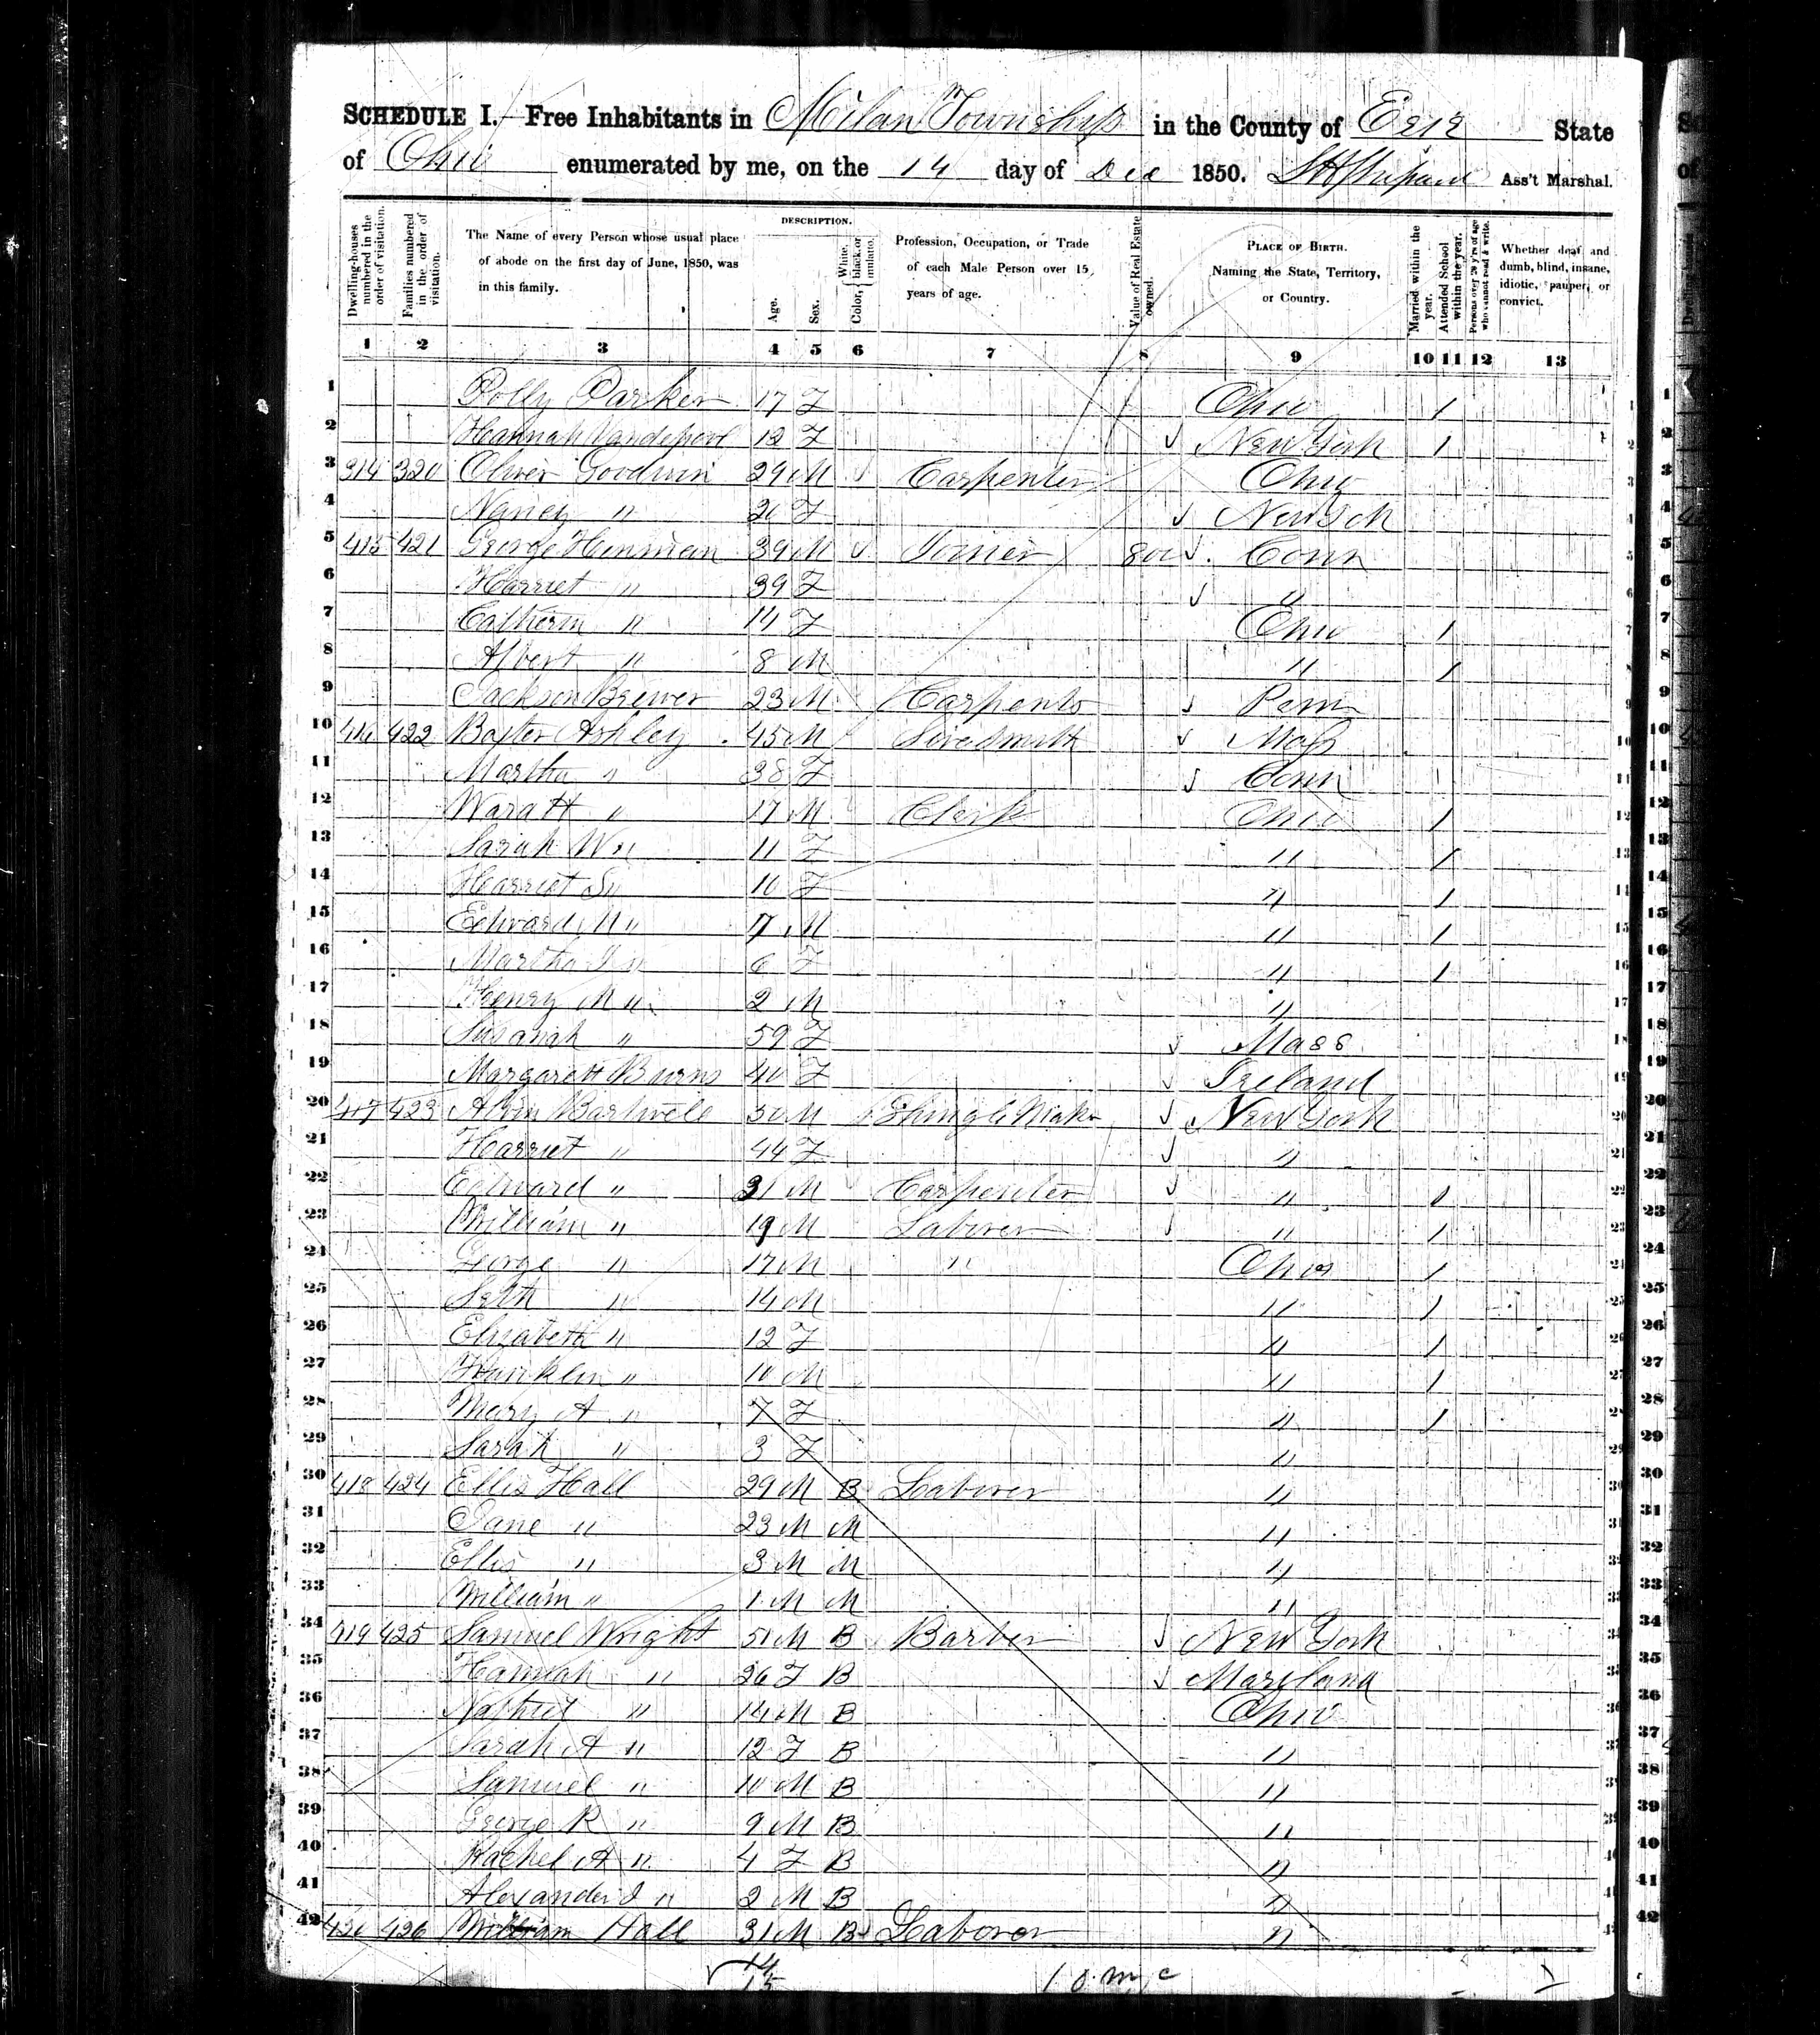 SCHEDULE I. Free Inhabitants in Milan Township in the County of Erie State
of Ohio enumerated by me, on the 14 day of Dec 1850. Ass't Marshal.
Dwelling-houses numbered in the order of visitation.
Families numbered in the order of visitation.
The Name of every Person whose usual place of abode on the first day of June, 1850, was in this family.
DESCRIPTION.
Age.
Sex.
Color, { White, black, or mulatto.
Profession, Occupation, or Trade of each Male Person over 15 years of age.
Value of Real Estate owned.
PLACE OF BIRTH. Naming the State, Territory, or Country.
Married within the year.
Attended School within the year.
Persons over 20 y'rs of age who cannot read & write.
Whether deaf and dumb, blind, insane, idiotic, pauper, or convict.
1 2 3 4 5 6 7 8 9 10 11 12 13
1 Polly Parker 17 F Ohio 1
2 Hannah 12 F New York 1
3 314 320 Oliver Goodwin 29 M Carpenter Ohio
4 Nancy " 20 F
5 415 421 George Hinman 39 M Joiner 800 Conn
6 Harriet " 39 F "
7 Catherin " 14 F Ohio 1
8 Albert " 8 M " 1
9 Jackson Brewer 23 M Penn
10 416 422 Ashley 45 M Mass
11 Martha " 38 F Conn
12 " 17 M Clerk Ohio 1
13 Sarah W " 11 F " 1
14 Harriet S " 10 F " 1
15 Edward M " 7 M " 1
16 Martha " 6 F " 1
17 Henry M " 2 M "
18 Susanah " 59 F Mass
19 Margarett Burns 40 F Ireland
20 417 423 50 M New York
21 Harriet " 44 F "
22 Edward " 21 M Carpenter " 1
23 William " 19 M Laborer " 1
24 George " 17 M " Ohio 1
25 Seth " 14 M " 1
26 Elizabeth " 12 F " 1
27 Franklin " 10 M " 1
28 Mary A " 7 F " 1
29 Sarah " 3 F "
30 418 424 Ellis Hall 29 M B Laborer "
31 Jane " 23 M M "
32 Ellis " 3 M M "
33 William " 1 M M "
34 419 425 Samuel Wright 51 M B Barber New York
35 Hannah " 26 F B Maryland
36 " 14 M B Ohio
37 Sarah A " 12 F B "
38 Samuel " 10 M B "
39 George R " 9 M B "
40 Rachel A " 4 F B "
41 Alexander J " 2 M B "
42 420 426 William Hall 31 M B Laborer "
14
15